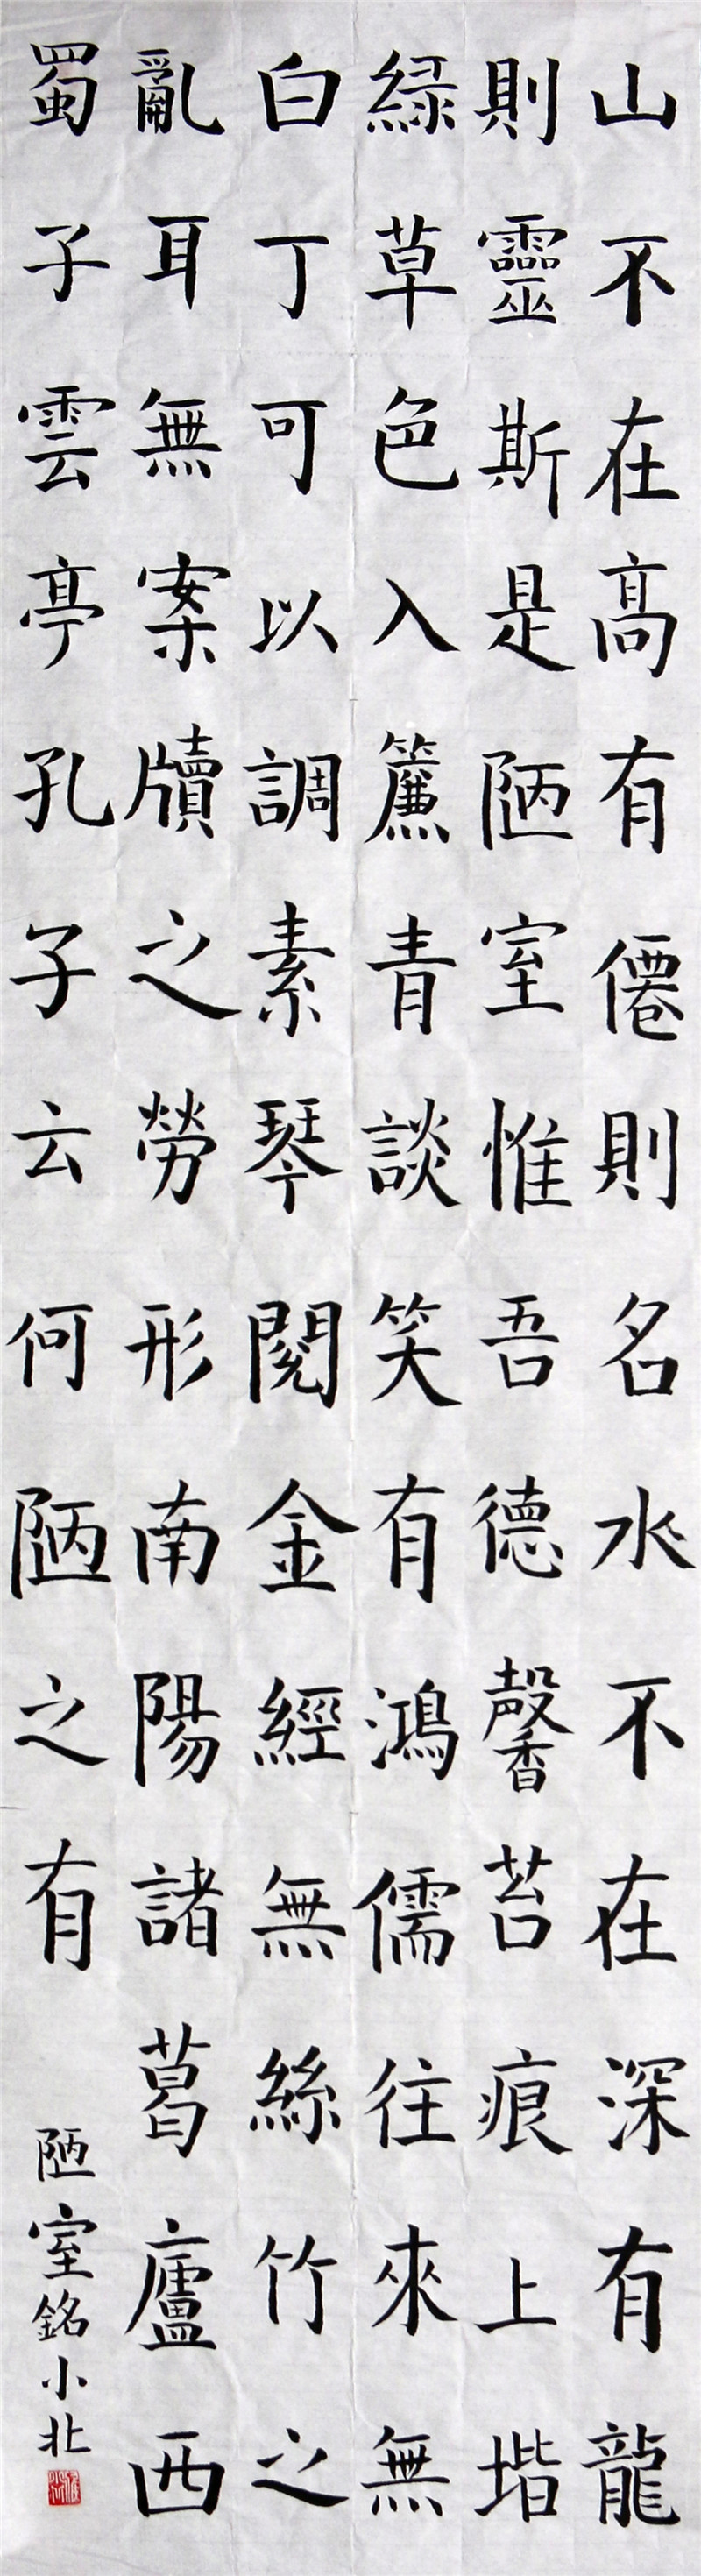 山不在高有僊則名水不在深有龍
則靈斯是陋室惟吾德馨苔痕上堦
綠草色入簾青談笑有鴻儒往來無
白丁可以調素琴閱金經無絲竹之
亂耳無案牘之勞形南陽諸葛廬西
蜀子雲亭孔子云何陋之有
陋室銘小北